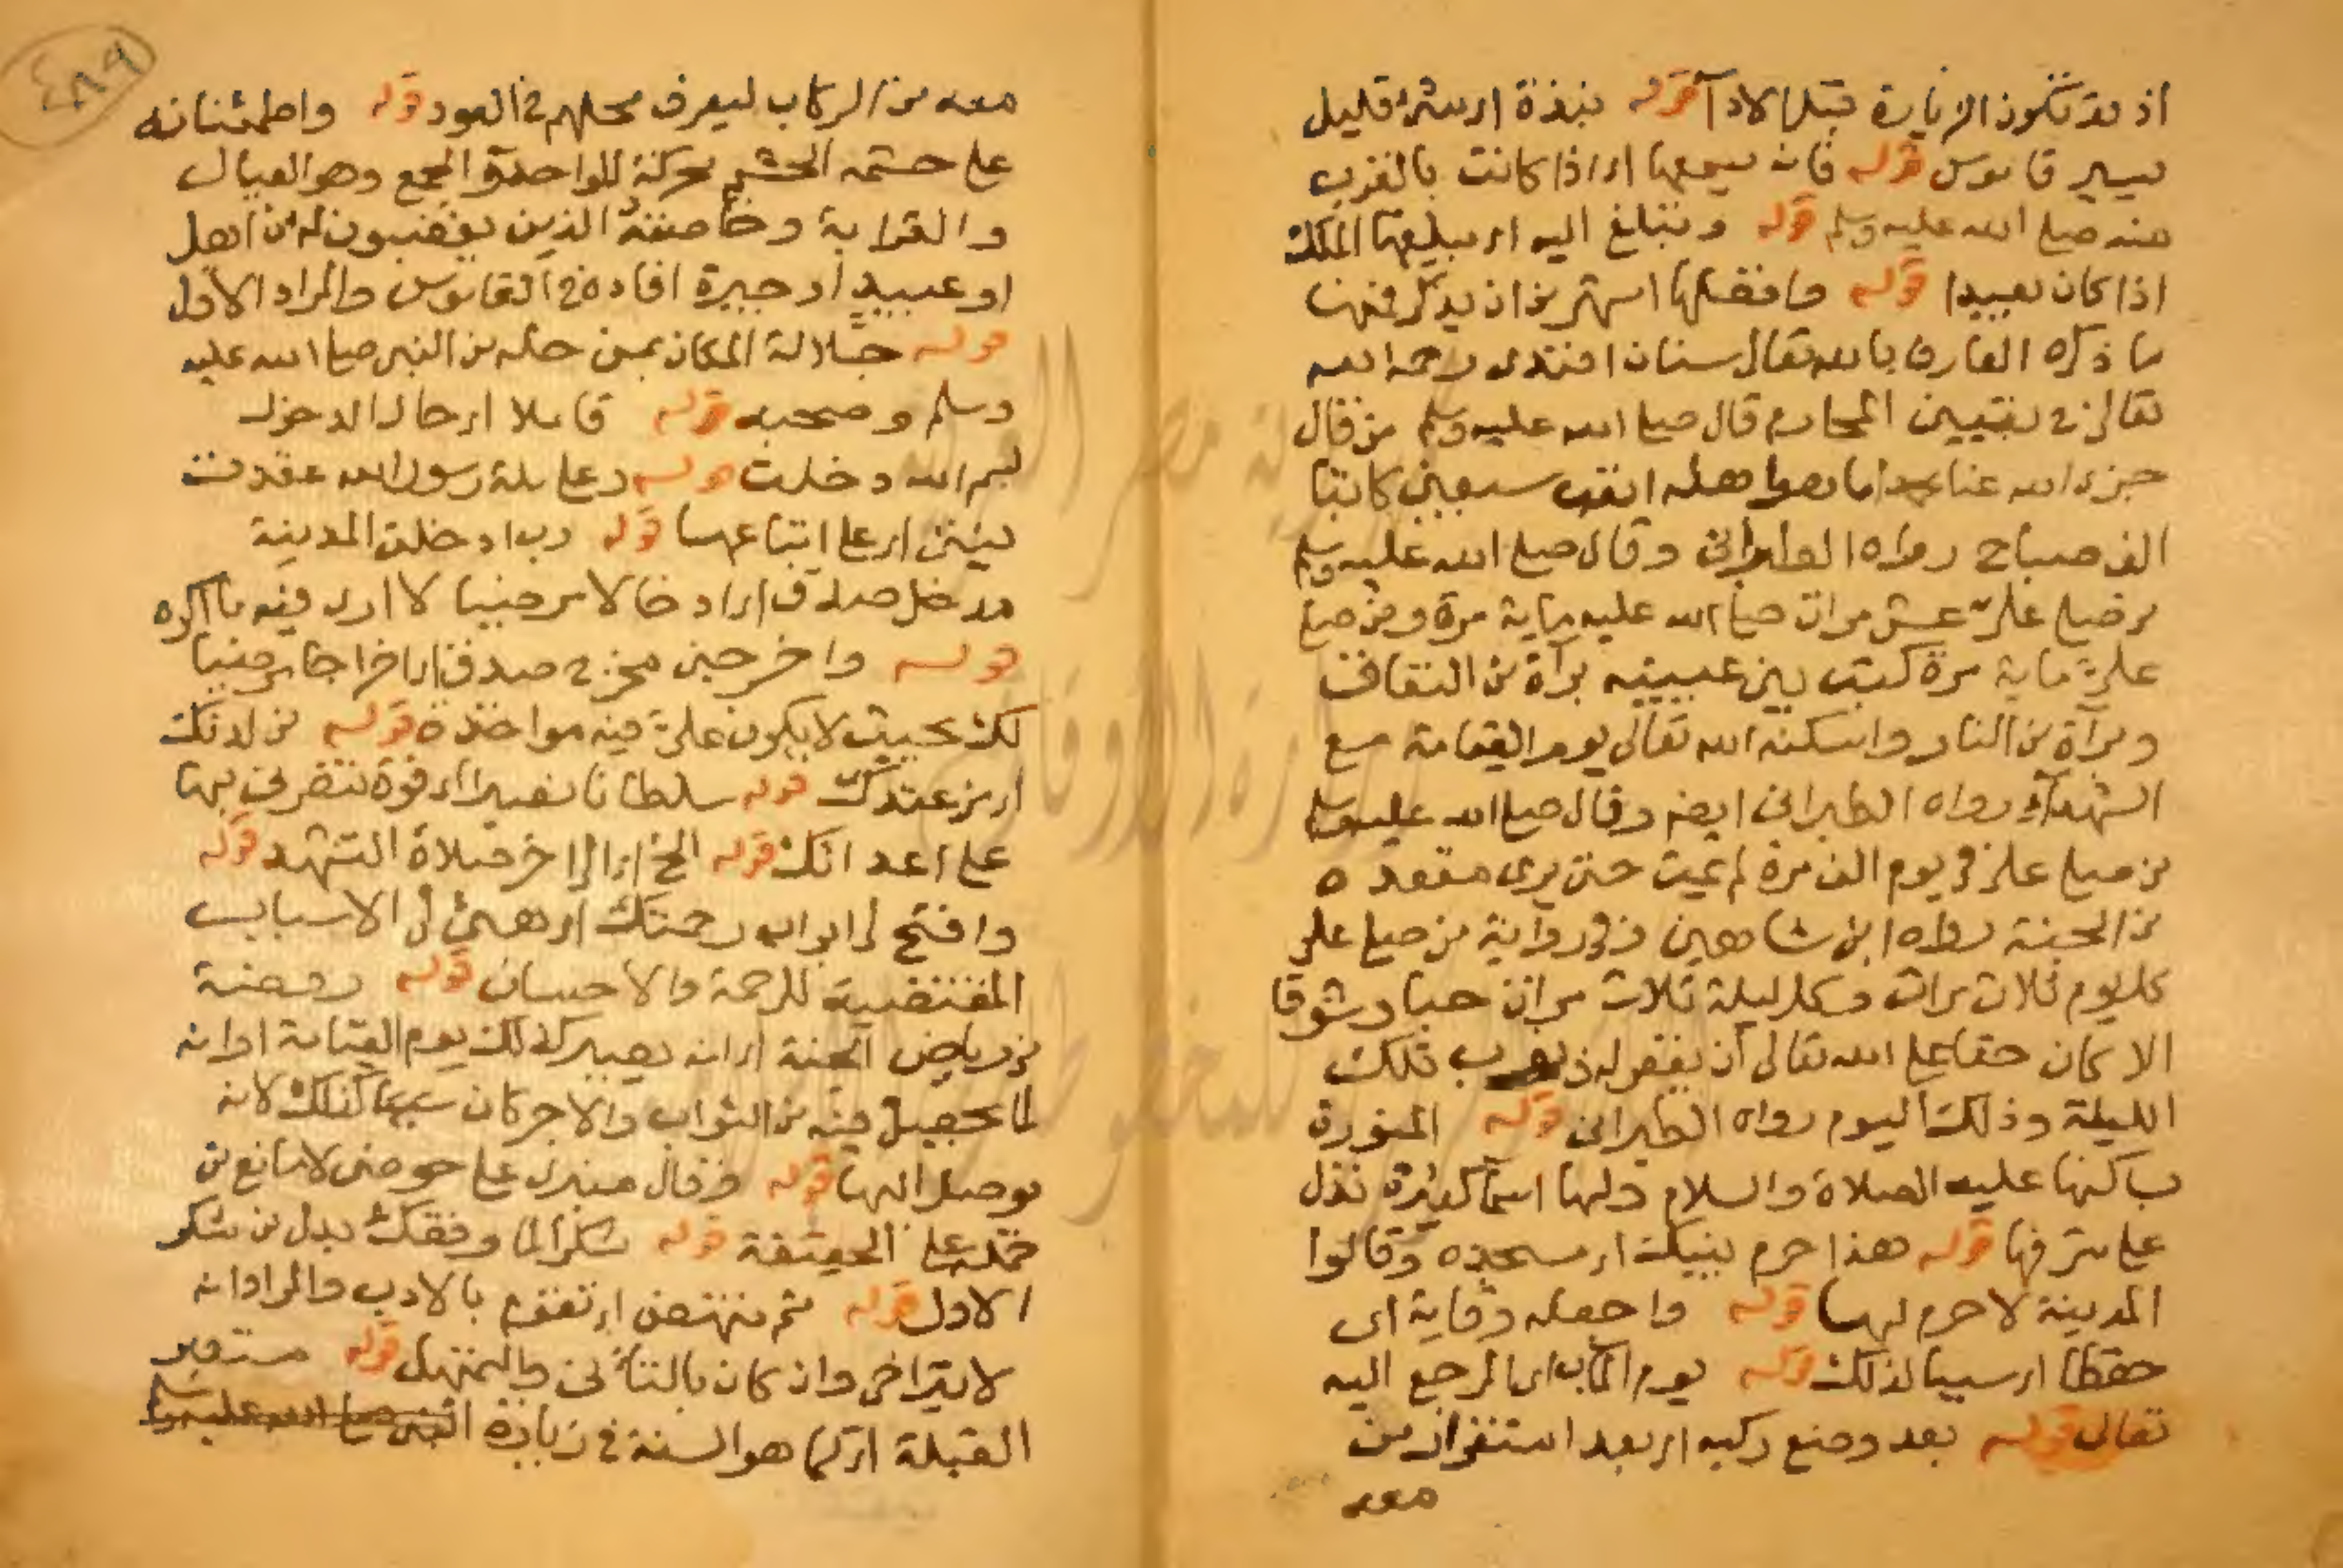 اذ قد تكون الزيارة قبل الاداء قوله نبذة اي شئ قليل
يسير قاموس قوله فانه يسمعها اي اذا كانت بالقرب
منه صلى الله عليه وسلم قوله وتبلغ اليه اي يبلغها الملك
اذا كان بعيدا قوله وفضلها اشهر من ان يذكر فمنها
ما ذكره العارف بالله تعالى سنان افندى رحمه الله
تعالى في تبيين المحارم قال صلى الله عليه وسلم من قال
جزى الله عنا محمدا ما هو اهله اتعب سبعين كاتبا
الف صباح رواه الطبرانى وقال صلى الله عليه وسلم
من صلى علي عشر مرات صلى الله عليه ماية مرة ومن صلى
علي ماية مرة كتب بين عينيه برآة من النفاق
وبرآة من النار واسكنه الله تعالى يوم القيامة مع
الشهدآء رواه الطبرانى ايضا وقال صلى الله عليه وسلم
من صلى علي في يوم الف مرة لم يمت حتى يرى مقعده
من الجنة رواه ابن شاهين وفي رواية من صلى علي
كل يوم ثلاث مرات وكل ليلة ثلاث مرات حبا وشوقا
الا كان حقا على الله تعالى ان يغفر له ذنوب تلك
الليلة وذلك اليوم رواه الطبرانى قوله المنورة
بساكنها عليه الصلاة والسلام ولها اسما كثيرة تدل
على شرفها قوله هذا حرم نبيك اي مسجده وقالوا
المدينة لا حرم لها قوله واجعله وقاية اى
حفظا اي سببا لذلك قوله يوم المآب اي المرجع اليه
تعالى قوله بعد وضع ركبه اي بعد استقرار من
معه
٤٨٩
معه من الركاب ليعرف محلهم في العود قوله واطمئنانه
على حشمه الحشم محركة للواحد والجمع وهو العيال
والقرابة وخاصته الذين يغضبون له من اهل
او عبيد او جيرة افاده في القاموس والمراد الاول
قوله جلالة المكان بمن حله من النبى صلى الله عليه
وسلم وصحبه قوله قائلا اي حال الدخول
بسم الله دخلت قوله وعلى ملة رسول الله عقدت
نيتى اي على اتباعها قوله رب ادخلنى المدينة
مدخل صدق اي ادخالا مرضيا لا ارى فيه ما اكره
قوله واخرجنى مخرج صدق اي اخراجا مرضيا
لك بحيث لا يكون علي فيه مواخذة قوله من لدنك
اي من عندك قوله سلطانا نصيرا اي قوة تنصرنى بها
على اعدائك قوله الخ اي الى اخر صلاة التشهد قوله
وافتح لي ابواب رحمتك اي هيئ لي الاسباب
المقتضية للرحمة والاحسان قوله روضة
من رياض الجنة اي انه يصير كذلك يوم القيامة او انه
لما يحصل فيه من الثواب والاجر كان شبيها كذلك لانه
يوصل اليها قوله وقال منبرى على حوضى لا مانع من
حمله على الحقيقة قوله شكرا لما وفقك بدل من شكر
الاول قوله ثم تنهض اي تقوم بالادب والمراد انه
لا يتراخى وان كان بالتأنى والتمهل قوله مستدبر
القبلة اي كما هو السنة في زيارة النبى صلى الله عليه وسلم